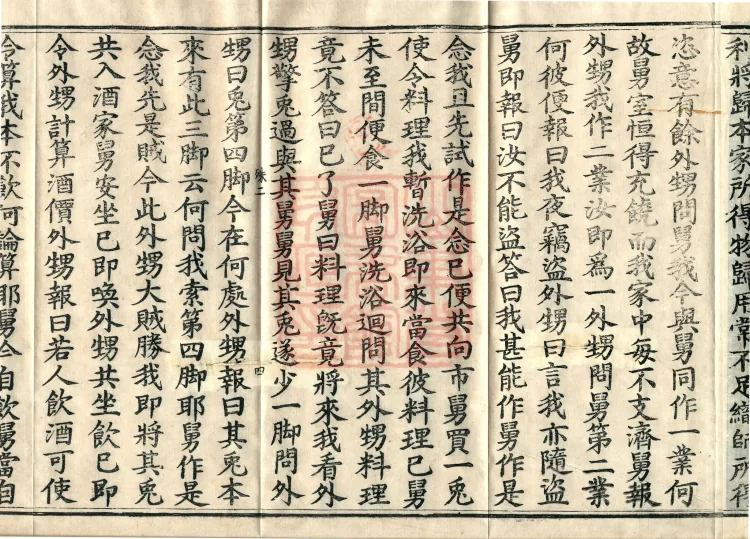 利將歸本家所得物歸用常不足縉師所得
恣意有餘外甥問舅我今與舅同作一業何
故舅室恒得充饒而我家中每不支濟舅報
外甥我作二業汝即爲一外甥問舅第二業
何彼便報曰我夜竊盜外甥曰言我亦隨盜
舅即報曰汝不能盜答曰我甚能作舅作是
念我且先試作是念已便共向市舅買一兔
使令料理我暫洗浴即來當食彼料理已舅
未至間便食一脚舅洗浴迴問其外甥料理
竟不答曰已了舅曰料理旣竟將來我看外
甥擎兔過與其舅舅見其兔遂少一脚問外
朱二 四
甥曰兔第四脚今在何處外甥報曰其兔本
來有此三脚云何問我索第四脚耶舅作是
念我先是賊今此外甥大賊勝我即將其兔
共入酒家舅安坐已即喚外甥共坐飲已即
令外甥計算酒價外甥報曰若人飲酒可使
令算我本不飲何論算耶舅今自飲舅當自